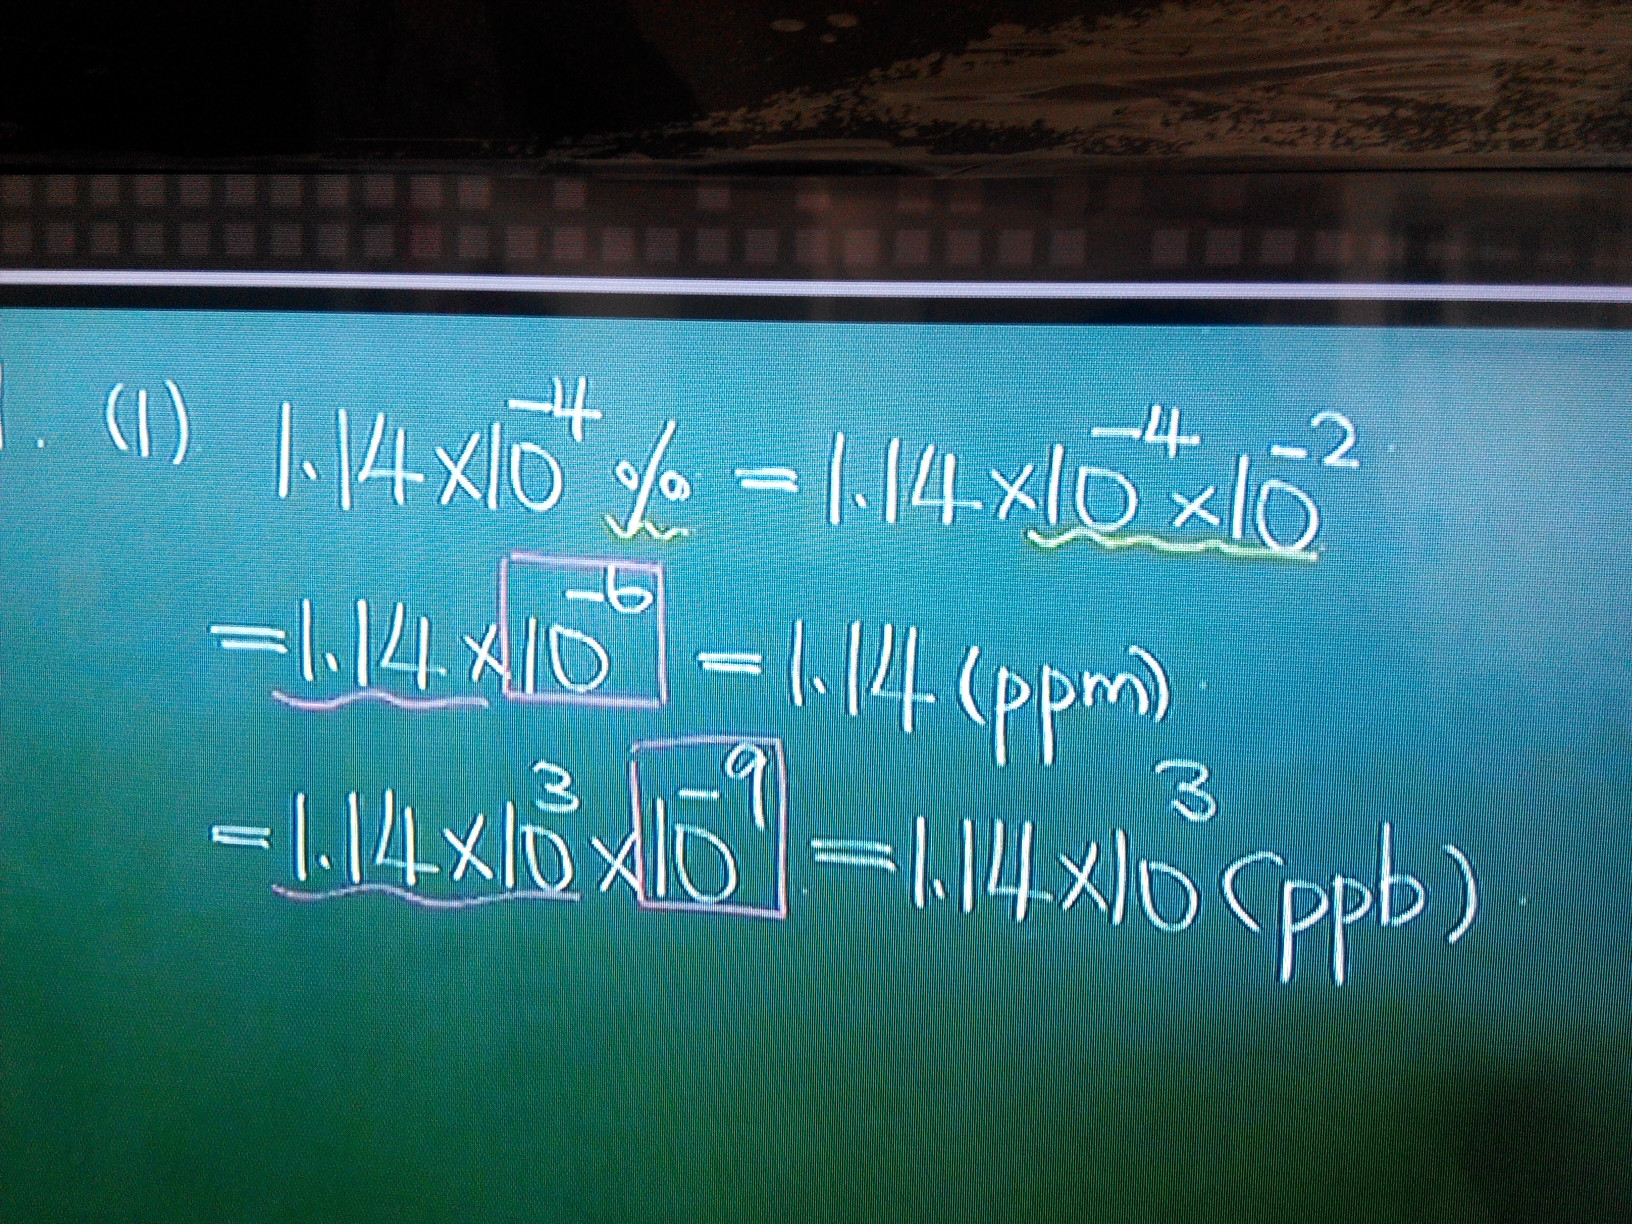 (1) 1.14×10⁻⁴ % = 1.14×10⁻⁴×10⁻²
=1.14×10⁻⁶ = 1.14 (ppm)
=1.14×10³×10⁻⁹ = 1.14×10³ (ppb)